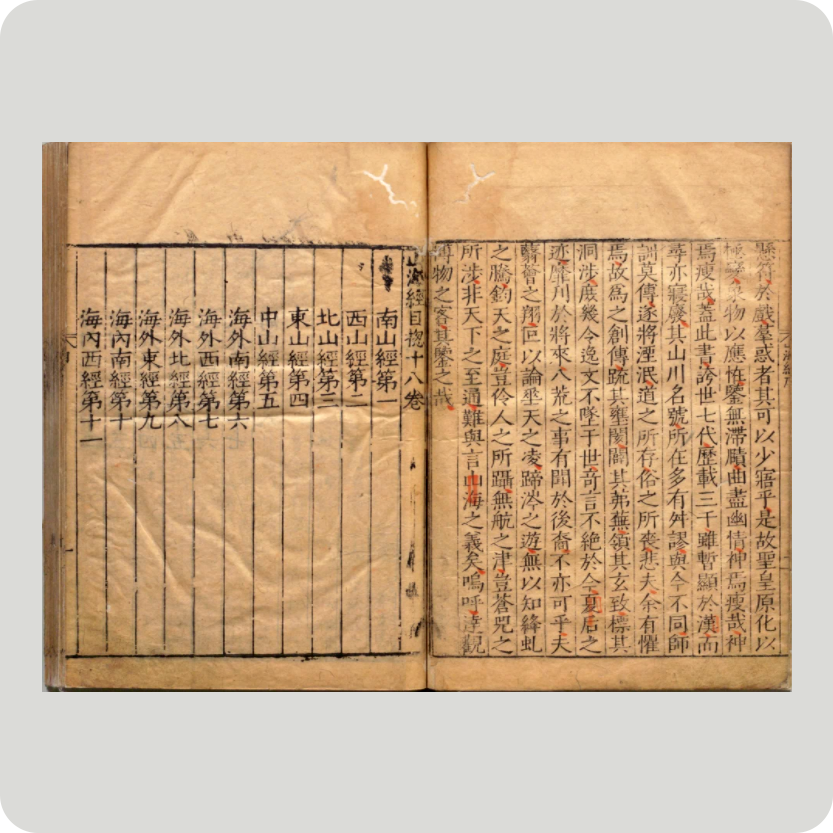 懸符於戲羣惑者其可以少寤乎是故聖皇原化以
極變象物以應恠鑒無滯賾曲盡幽情神焉瘦哉神
焉瘦哉蓋此書誇世七代歷載三千雖暫顯於漢而
尋亦寢廢其山川名號所在多有舛謬與今不同師
訓莫傳遂將湮泯道之所存俗之所喪悲夫余有懼
焉故為之創傳疏其壅閡闢其茀蕪領其玄致標其
洞涉庶幾令逸文不墜于世奇言不絕於今夏后之
迹靡刊於將來八荒之事有聞於後裔不亦可乎夫
翳薈之翔叵以論垂天之凌蹄涔之遊無以知絳虬
之騰鈞天之庭豈伶人之所躡無航之津豈蒼咒之
所涉非天下之至通難與言山海之義矣嗚呼達觀
博物之客其鑒之哉
山海經目摠十八卷
南山經第一
西山經第二
北山經第三
東山經第四
中山經第五
海外南經第六
海外西經第七
海外北經第八
海外東經第九
海內南經第十
海內西經第十一